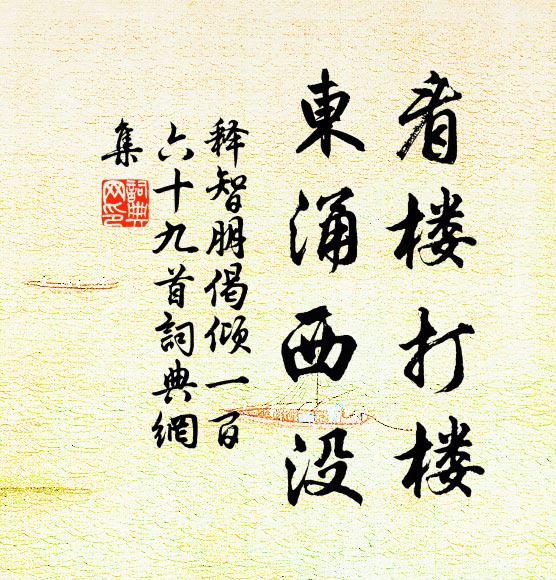 看楼打楼
東涌西没
释智朋偈倾一百
六十九首詞典網
集
詞典
网印